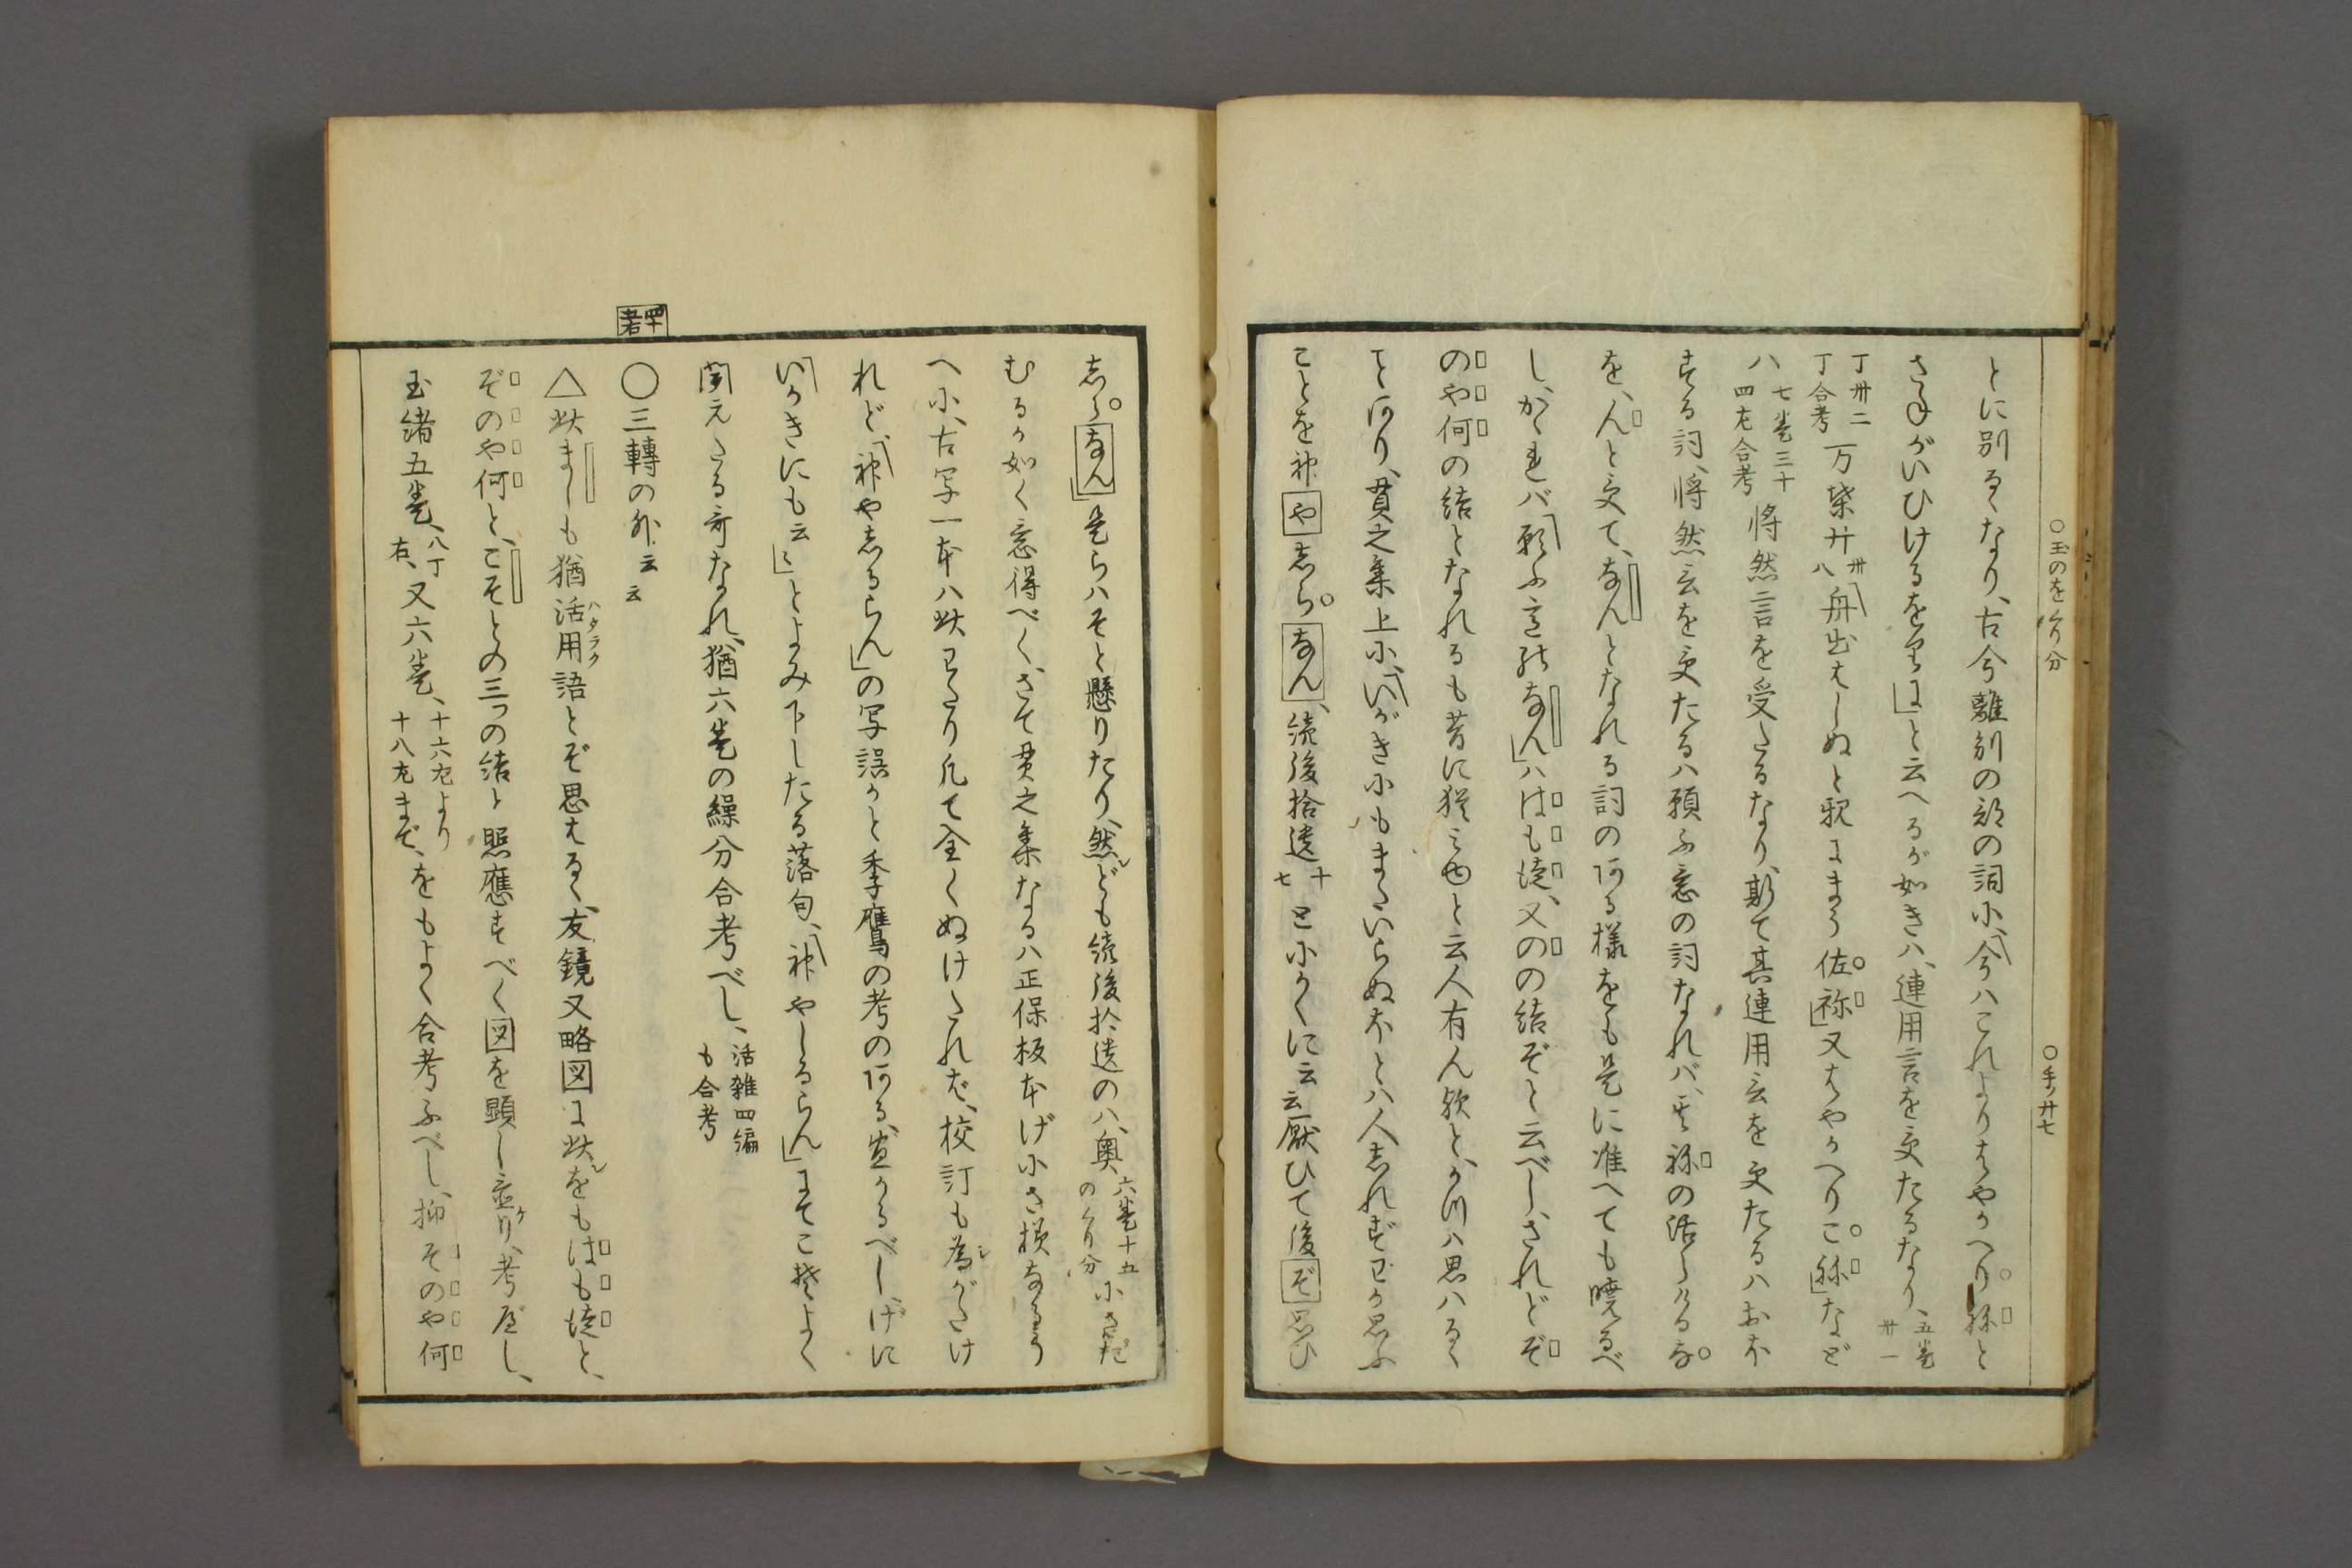 ○玉のをくり分　○手ノ廿七
とに別るゝなり、古今離別の部の詞小、今ハこれよりはやかへり祢と
さ　がいひけるを　」と云へるが如きハ、連用言を受たるなり、五巻
卅一
丁卅二
丁合考
万葉廿
卅八
舟出はしぬと親にまう佐祢」又はやかへりこ祢」など
八
七巻三十
四左合考
将然言を受たるなり、斯て其連用言を受たるハおふ
する詞、将然言を受たるハ願ふ意の詞なれバ、其祢の活らけるな
を、んと受て、なんとなれる詞のある様をも是に准へても暁るべ
し、かゝれバ願ふ意のなん」ハはも徒、又のの結ぞと云べし、されどぞ
のや何の結となれるも昔に猶ミゆと云人有ん歟と、かつハ思ハるゝ
ことあり、貫之集上小、いがき小もまたいらぬほとハ人しれずわが思ふ
ことを神やしらなん、続後拾遺
十七
とふかくに云云厭ひて後ぞ思ひ
志らなん」是らハそと懸りたり、然ども続後拾遺の八、奥
六巻十五
のくり分
小さだ
むるか如く意得べく、さて貫之集なるハ正保板本げ小さ損なるう
へ小、古写一本ハ此わたり凡て全くぬけたれば、校訂も為がたけ
れど、神やしるらん」の写誤かと季鷹の考のある、宜かるべし、げに
いかきにも云々」とよみ下したる落句、神やしるらん」にてこそよく
聞えたる哥なれ、猶六巻の繰分合考べし、
活雑四編
も合考
四十考
○三轉の外云云
△此ましも猶活用語とぞ思はるゝ、友鏡又略図に此をもはも徒と、
ハタラク
ぞのや何と、こそとの三つの結と照應すべく図を顕し並り、考ふべし、
玉緒五巻、
八丁右、
又六巻、
十六左より
十八左まで、
をもよく合考ふべし、抑そのや何